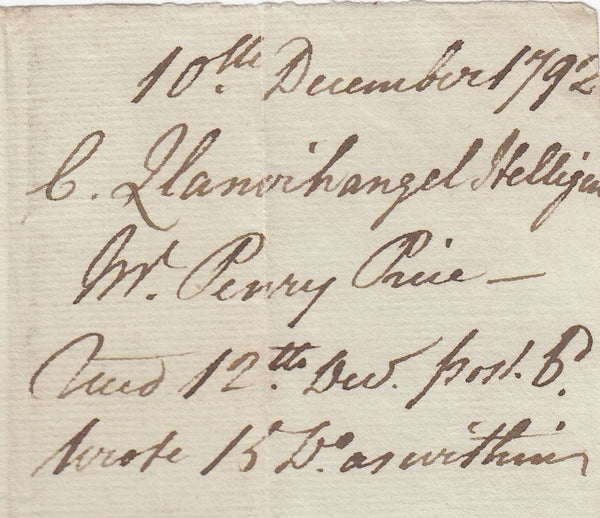 10th December 1792
C. Llanvihangel Helligen
Mr. Penry Price —
Recd 12th Dec. post 6d.
Wrote 15 Do as within